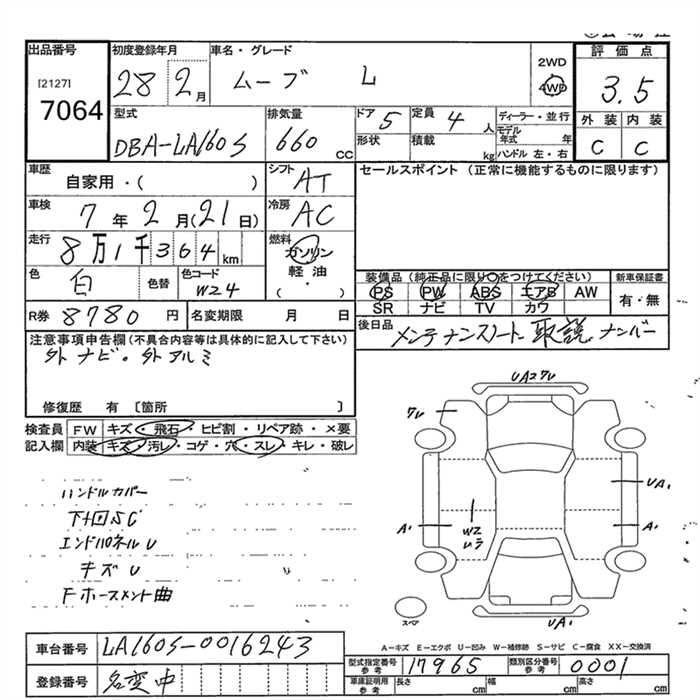 出品番号
[2127]
7064
初度登録年月
28 2月
車名・グレード
ムーブ L
2WD
4WD
評価点
3.5
外装 内装
C C
型式
DBA-LA160S
排気量
660 CC
ドア 5
形状
定員 4 人
積載 kg
ディーラー・並行
モデル年式 年
ハンドル 左・右
車歴
自家用・( )
シフト
AT
セールスポイント (正常に機能するものに限ります)
車検
7年2月(21日)
冷房
AC
走行
8万1千364km
燃料
ガソリン
軽油・
( )
色
白
色替
色コード
W24
装備品 (純正品に限り○をつけてください)
PS PW ABS エアB AW
SR ナビ TV カワ
新車保証書
有・無
R券 8780 円
名変期限 月 日
後日品
メンテナンスノート 取説 ナンバー
注意事項申告欄(不具合内容等は具体的に記入して下さい)
外ナビ・外アルミ
修復歴 有 [箇所 ]
検査員記入欄
FW キズ・飛石・ヒビ割・リペア跡・×要
内装 キズ・汚レ・コゲ・穴・スレ・キレ・破レ
ハンドルカバー
下回SC
エンドパネルU
キズU
Fホースメント曲
UA2
A1
W2
UA1
A1
UA1
スペア
A-キズ E-エクボ U-凹み W-補修跡 S-サビ C-腐食 XX-交換済
車台番号 LA160S-0016243
登録番号 名変中
型式指定番号 参考 17965
類別区分番号 参考 0001
車庫証明用 参考
長さ cm 幅 cm 高さ cm